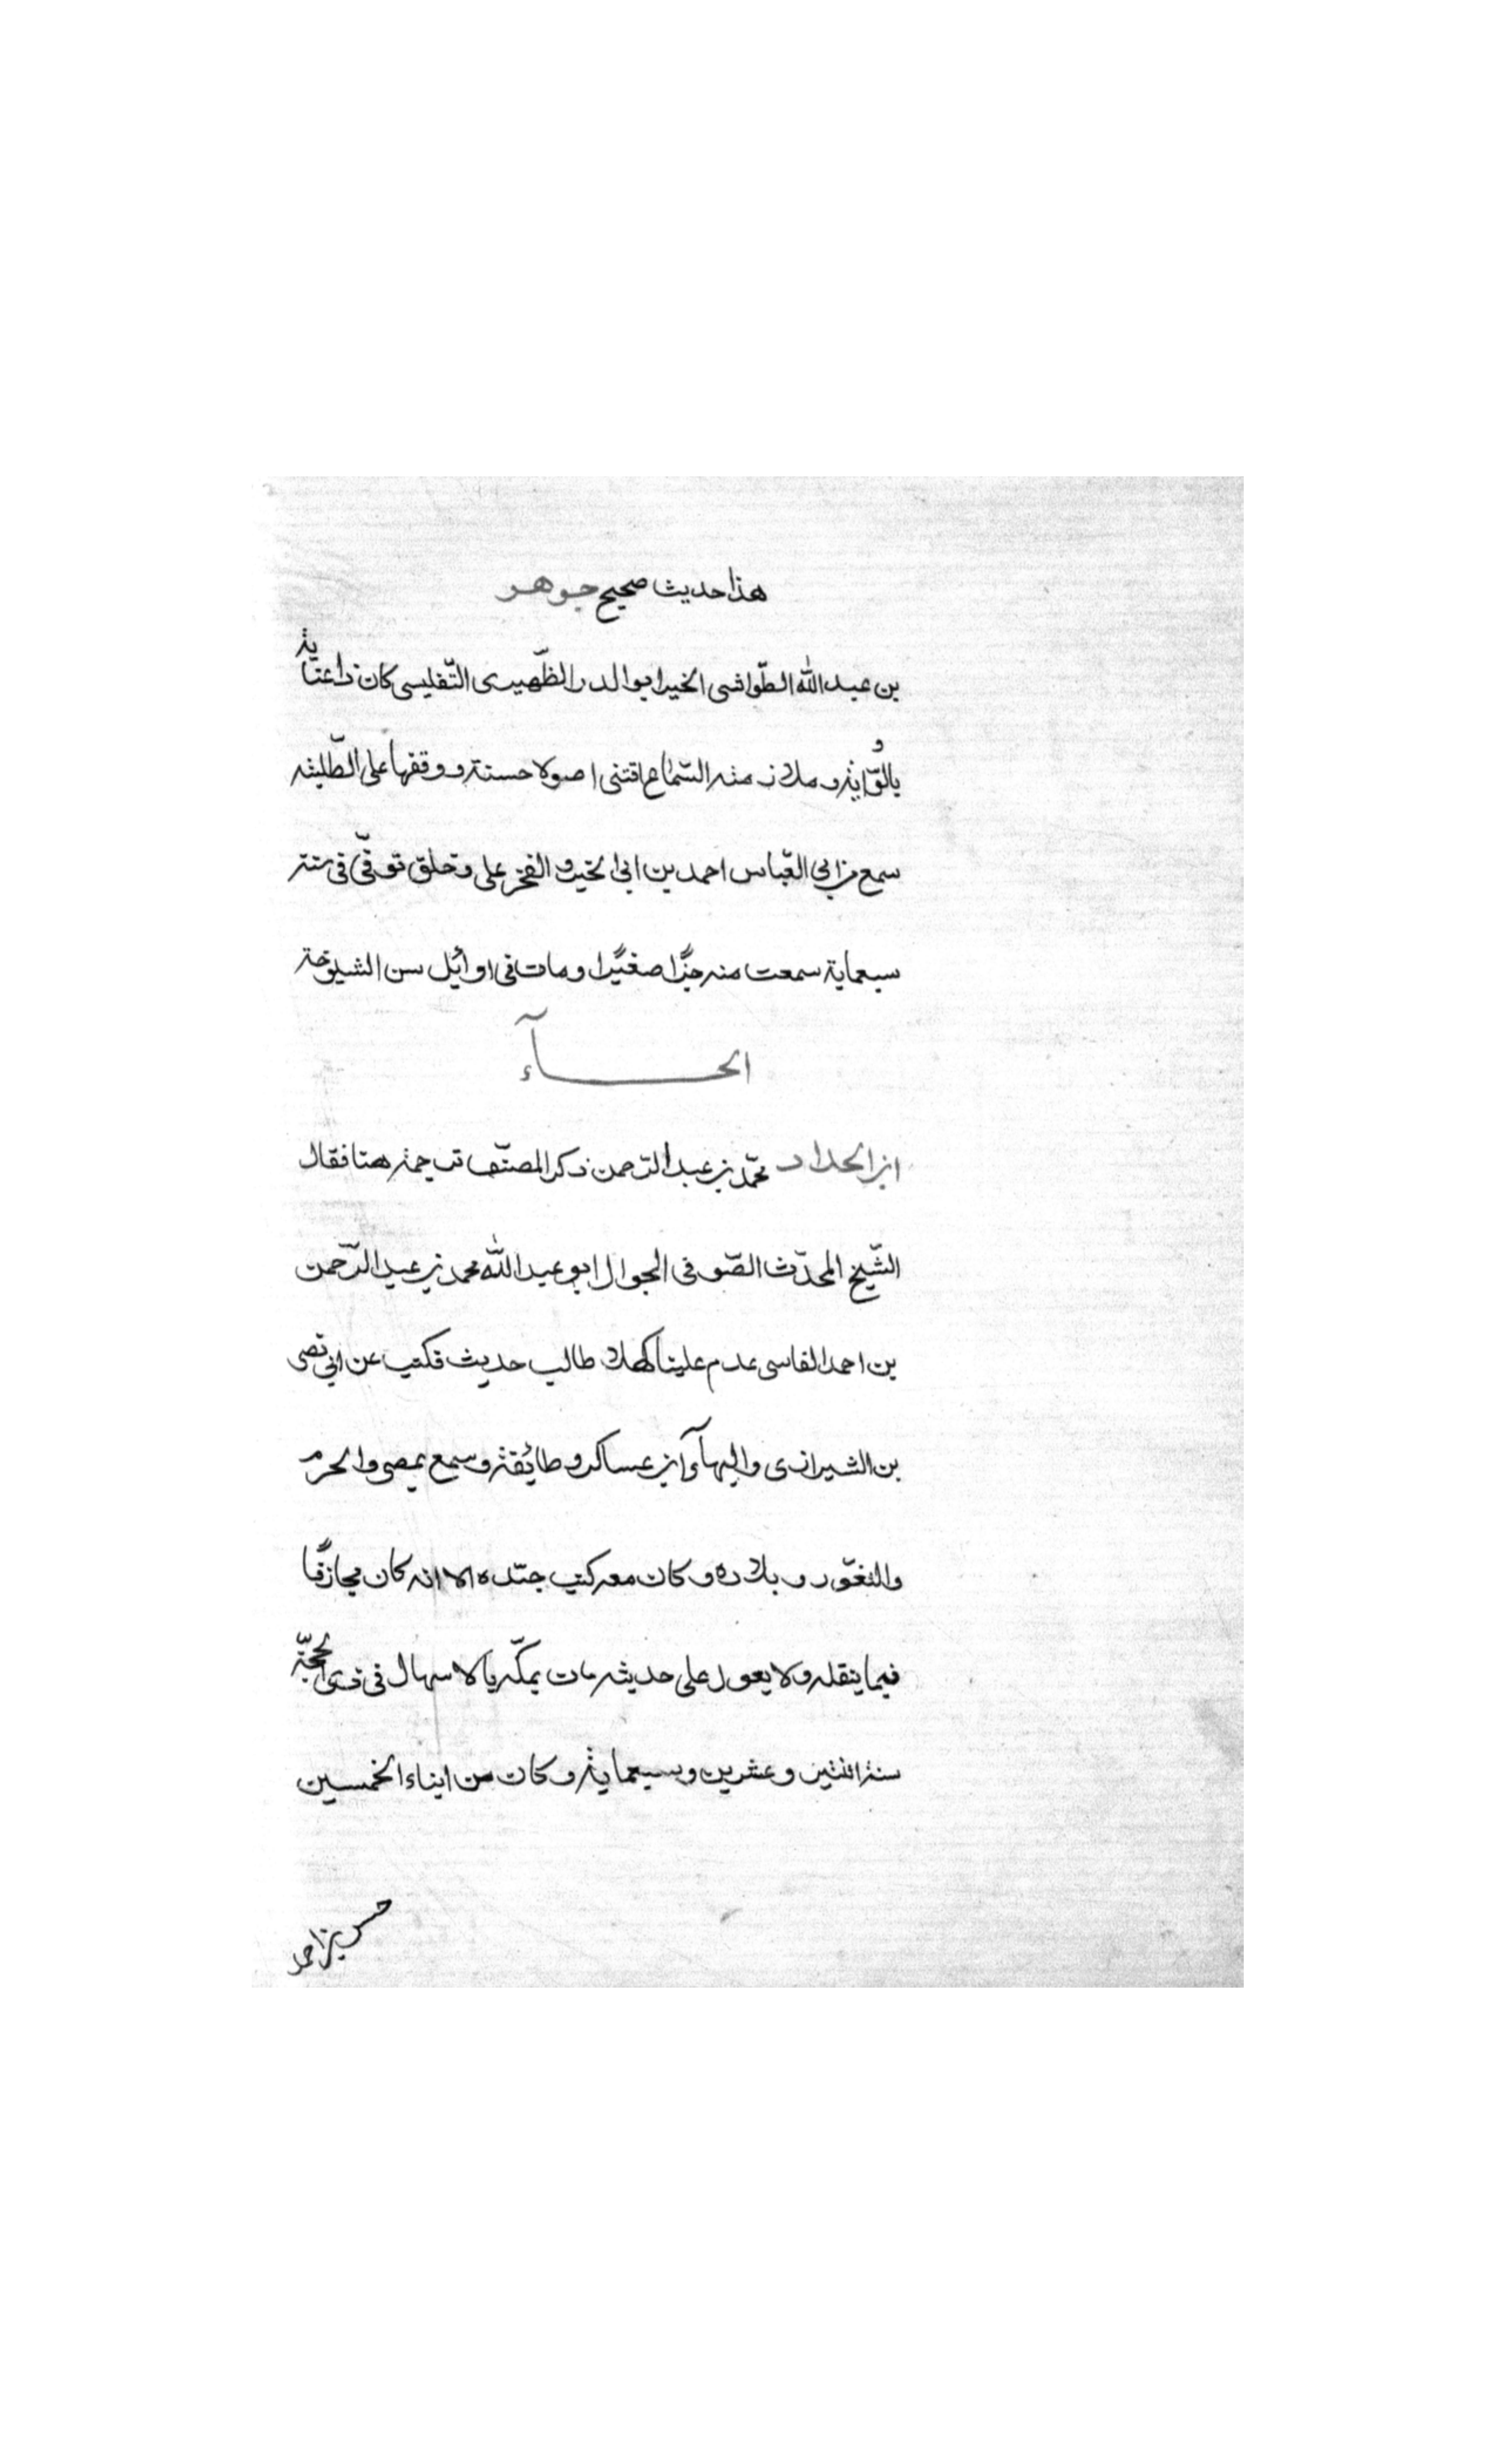 هذا حديث صحيح جوهر
بن عبد الله الطّواشى الخير ابو الدر الظّهيرى التّفليسى كان ذا عناية
بالرّواية و ملازمة السّماع اقتنى اصولا حسنة و وقفها على الطّلبة
سمع من ابى العبّاس احمد بن ابى الخير و الفخر على و خلق توفّى فى سنة
سبعماية سمعت منه جزًا صغيرًا و مات فى اوائل سن الشيخوخة
الحآء
ابن الحداد محمّد بن عبد الرّحمن ذكر المصنّف ترجمته هنا فقال
الشّيخ المحدّث الصّوفى الجوال ابو عبد الله محمد بن عبد الرّحمن
بن احمد الفاسى قدم علينا كهلا طالب حديث فكتب عن ابى نصر
بن الشيرازى و البهآء ابن عساكر و طائفة و سمع بمصر و الحرم
و الثغور و بلاده و كان معه كتب جيّدة الا انه كان مجازفًا
فيما ينقله و لا يعول على حديثه مات بمكّة بالاسهال فى ذى الحجّة
سنة اثنتين و عشرين و سبعماية و كان من ابناء الخمسين
حسن بن احمد